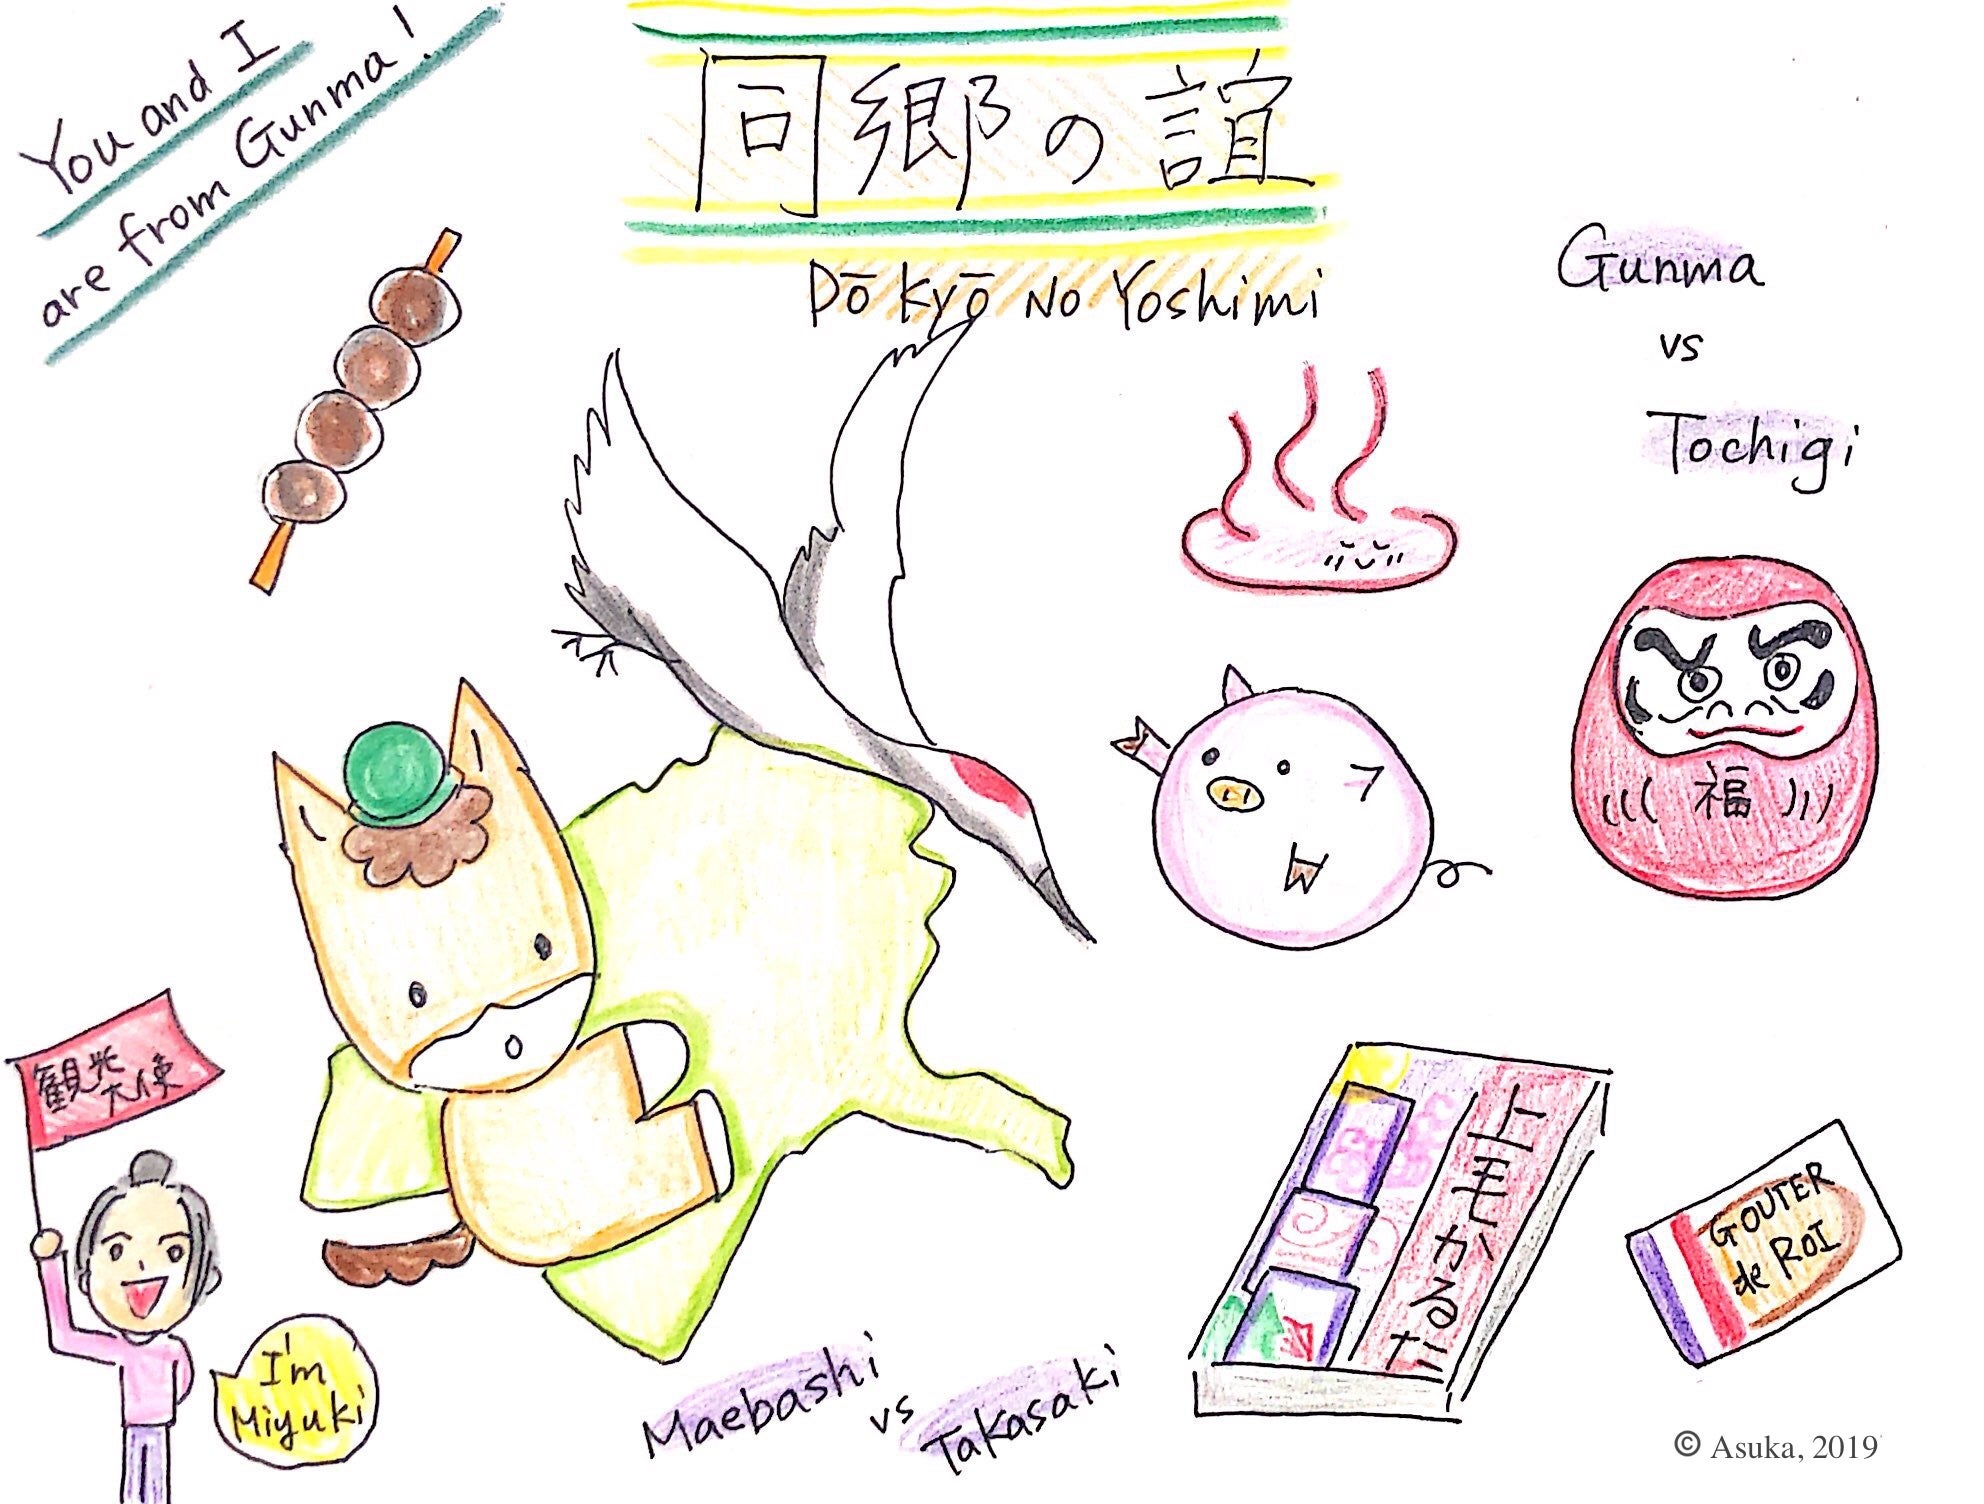 You and I
are from Gunma!
同郷の誼
Dō Kyō No Yoshimi
Gunma
vs
Tochigi
福
観光
大使
I'm
Miyuki
Maebashi
vs
Takasaki
上毛かるた
GOUTER
de ROI
© Asuka, 2019